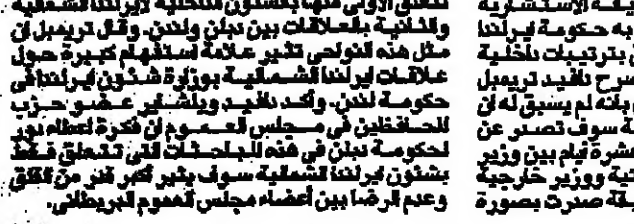 تتعلق الأولى منها بالشئون الداخلية لايرلندا الشمالية
والثانية بالعلاقات بين دبلن ولندن. وقال تريمبل ان
مثل هذه النواحى تثير علامة استفهام كبيرة حول
علاقات ايرلندا الشمالية بوزارة شئون ايرلندا فى
حكومة لندن. وأكد دافيد ويلشاير عضو حزب
المحافظين فى مجلس العموم ان فكرة اعطاء دور
لحكومة دبلن فى هذه المباحثات التى تتعلق فقط
بشئون ايرلندا الشمالية سوف يثير أكبر قدر من القلق
وعدم الرضا بين أعضاء مجلس العموم البريطانى.
الاستشارية
به حكومة ايرلندا
بترتيبات داخلية
سرح دافيد تريمبل
بانه لم يسبق له ان
سوف تصدر عن
عشرة ايام بين وزير
ووزير خارجية
صدرت بصورة